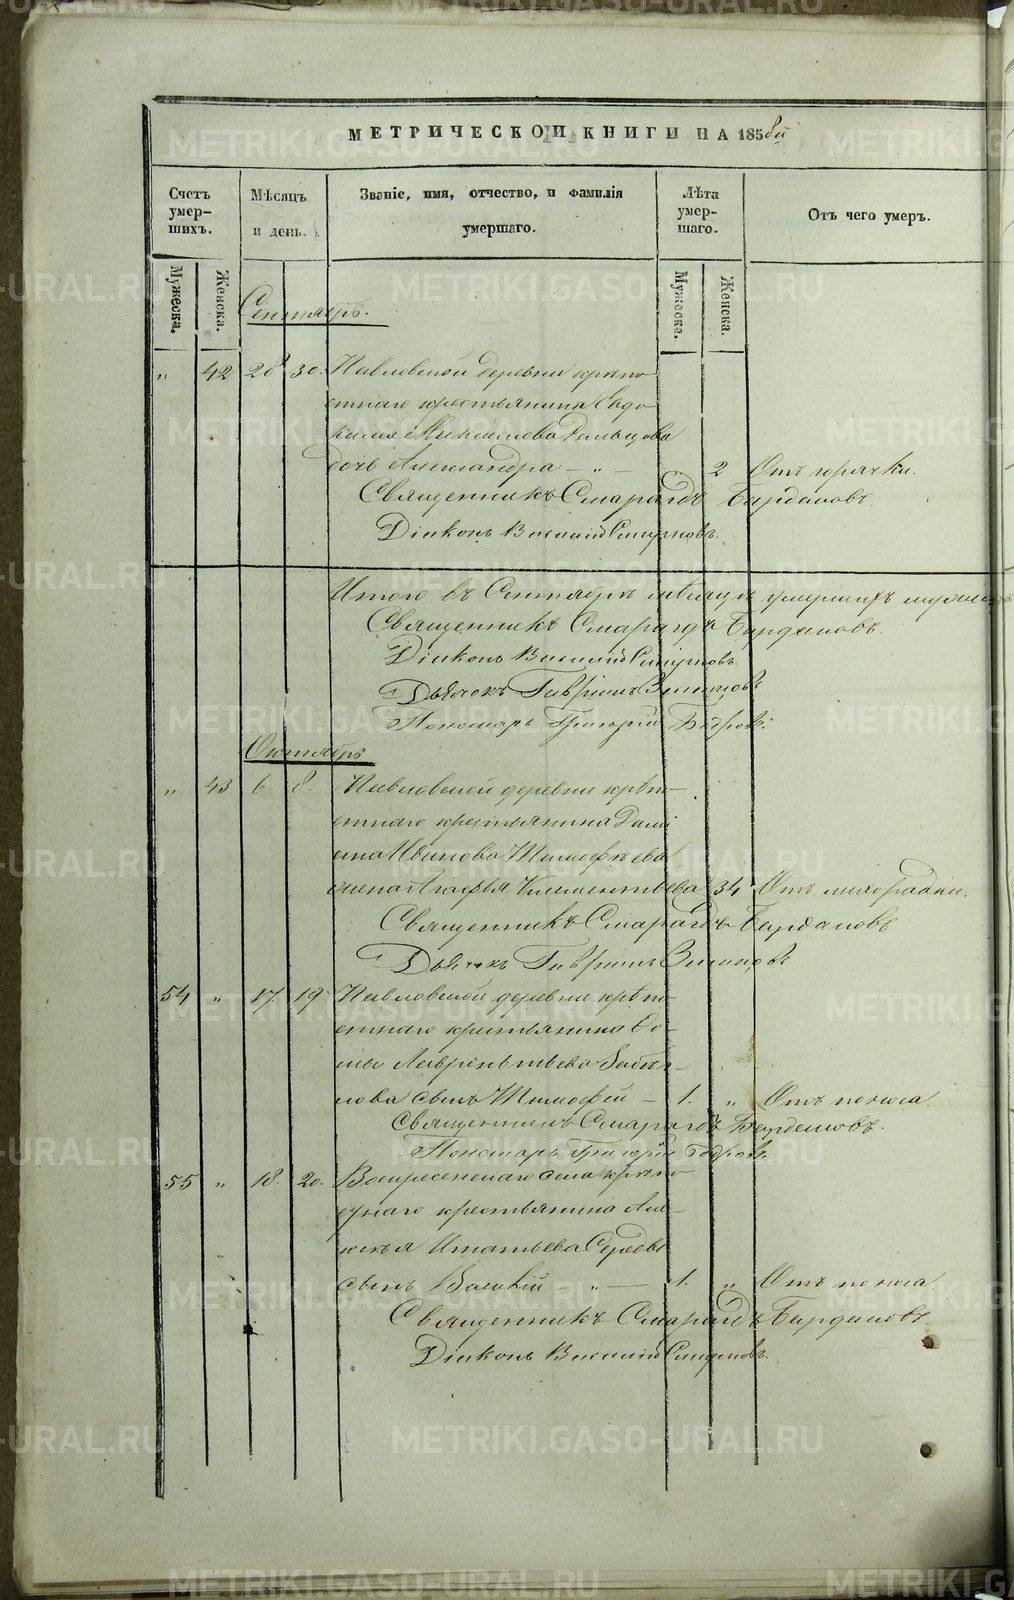 МЕТРИЧЕСКОЙ КНИГИ НА 1858й
Счетъ умер- шихъ.
Мѣсяцъ и день.
Званіе, имя, отчество, и фамилія умершаго.
Лѣта умер- шаго.
Отъ чего умеръ.
Мужеска. Женска.
Мужеска. Женска.
Сентябрь.
„ 42 28 30. Павловской деревни крѣпо-
стнаго крестьянина Евдо-
кима
дочь Александра — „ — 2 Отъ горячки.
Священникъ Смарагдъ Бирдановъ.
Діаконъ Василій Смирновъ.
Итого въ Сентябрѣ мѣсяцѣ умершихъ
Священникъ Смарагдъ Бирдановъ.
Діаконъ Василій Смирновъ.
Дьячокъ Гавріилъ
Пономарь Григорій
Октябрь
„ 43 6. 8. Павловской деревни крѣпо-
стнаго крестьянина
Иванова Тимофѣева
жена Агафья Климентьева 34 Отъ лихорадки.
Священникъ Смарагдъ Бирдановъ
Дьячокъ Гавріилъ
54 „ 17 19 Павловской деревни крѣпо-
стнаго крестьянина Ѳо-
мы Лаврентьева
сынъ Тимофей — 1. „ Отъ поноса.
Священникъ Смарагдъ Бирдановъ.
Пономарь Григорій
55 „ 18. 20. Воскресенскаго села крѣпо-
стнаго крестьянина Але-
ксѣя Игнатьева
сынъ — „ — 1. „ Отъ поноса.
Священникъ Смарагдъ Бирдановъ.
Діаконъ Василій Смирновъ.
METRIKI.GASO-URAL.RU